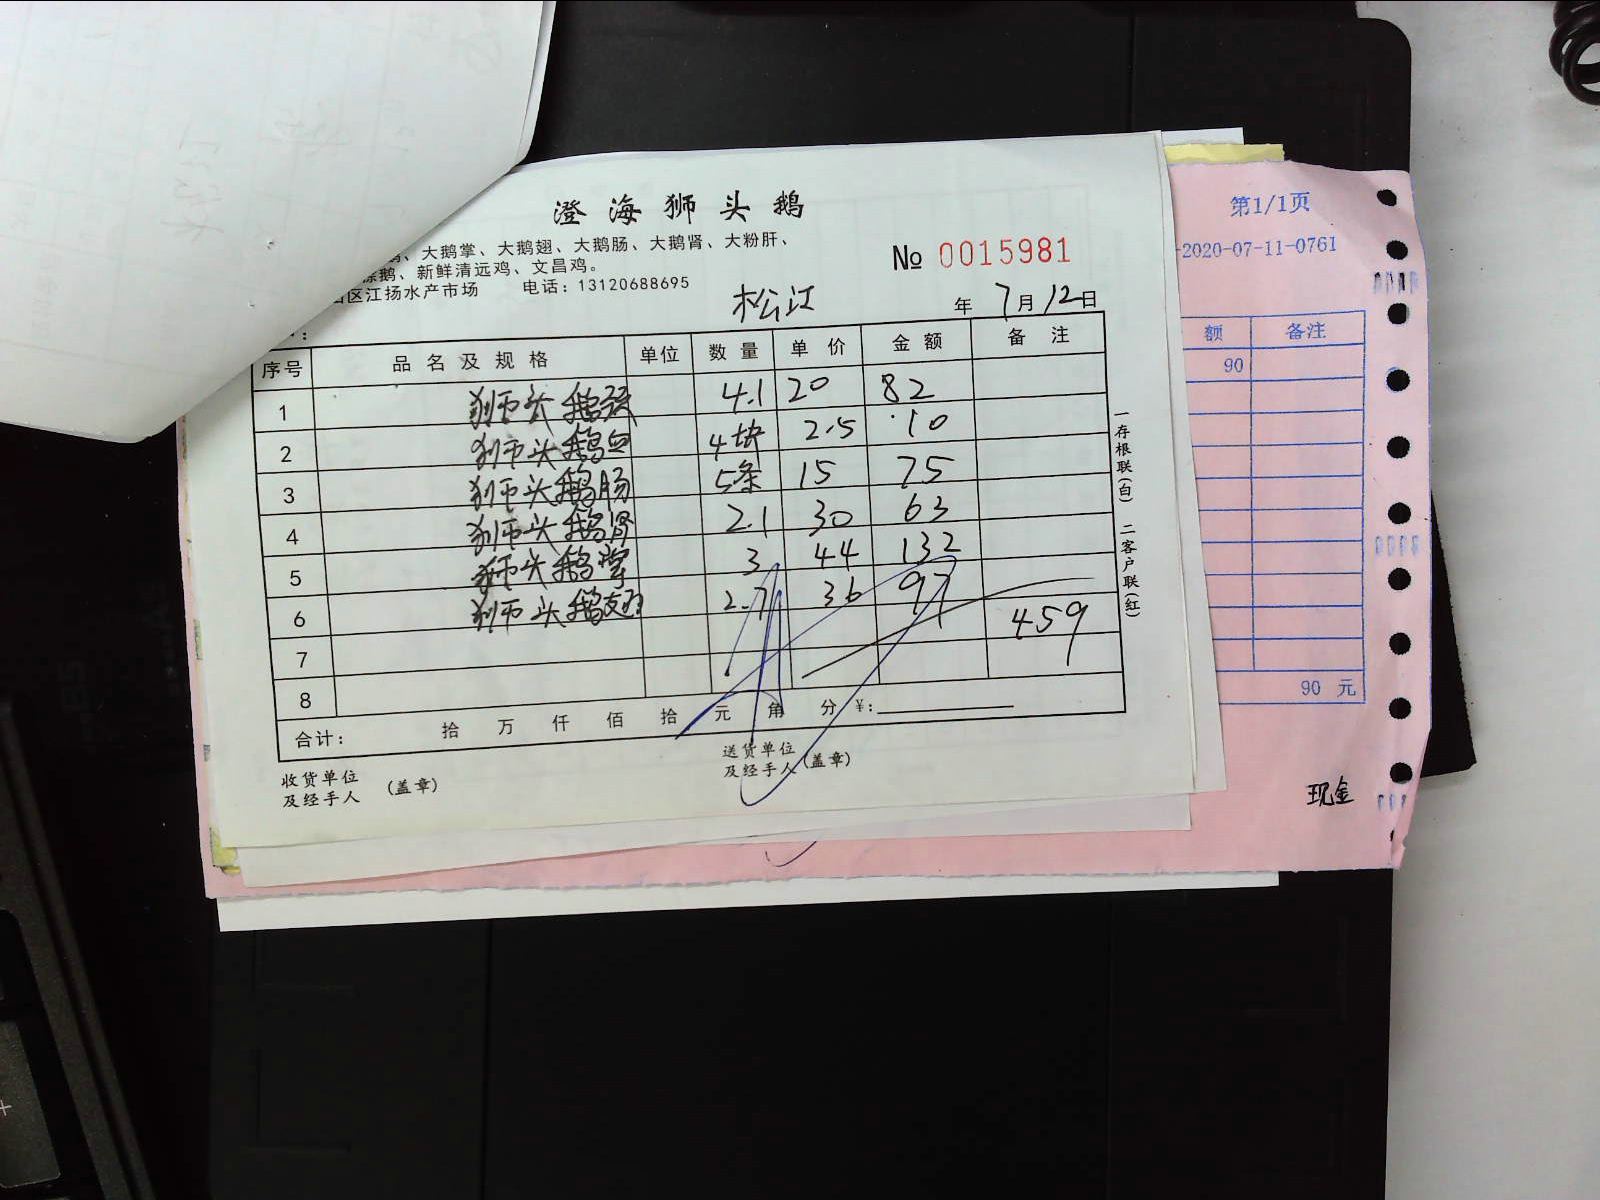 澄海狮头鹅
、大鹅掌、大鹅翅、大鹅肠、大鹅肾、大粉肝、
鹅、新鲜清远鸡、文昌鸡。
区江扬水产市场 电话：13120688695
№ 0015981
松江 年 7月12日
序号 品名及规格 单位 数量 单价 金额 备注
1 狮头鹅头 4.1 20 82
2 狮头鹅血 4块 2.5 10
3 狮头鹅肠 5条 15 75
4 狮头鹅肾 2.1 30 63
5 狮头鹅掌 3 44 132
6 狮头鹅翅 2.7 36 97
459
7
8
合计： 拾 万 仟 佰 拾 元 角 分 ¥：
收货单位及经手人 (盖章)
送货单位及经手人 (盖章)
一存根联(白) 二客户联(红)
第1/1页
-2020-07-11-0761
额 备注
90
90 元
现金